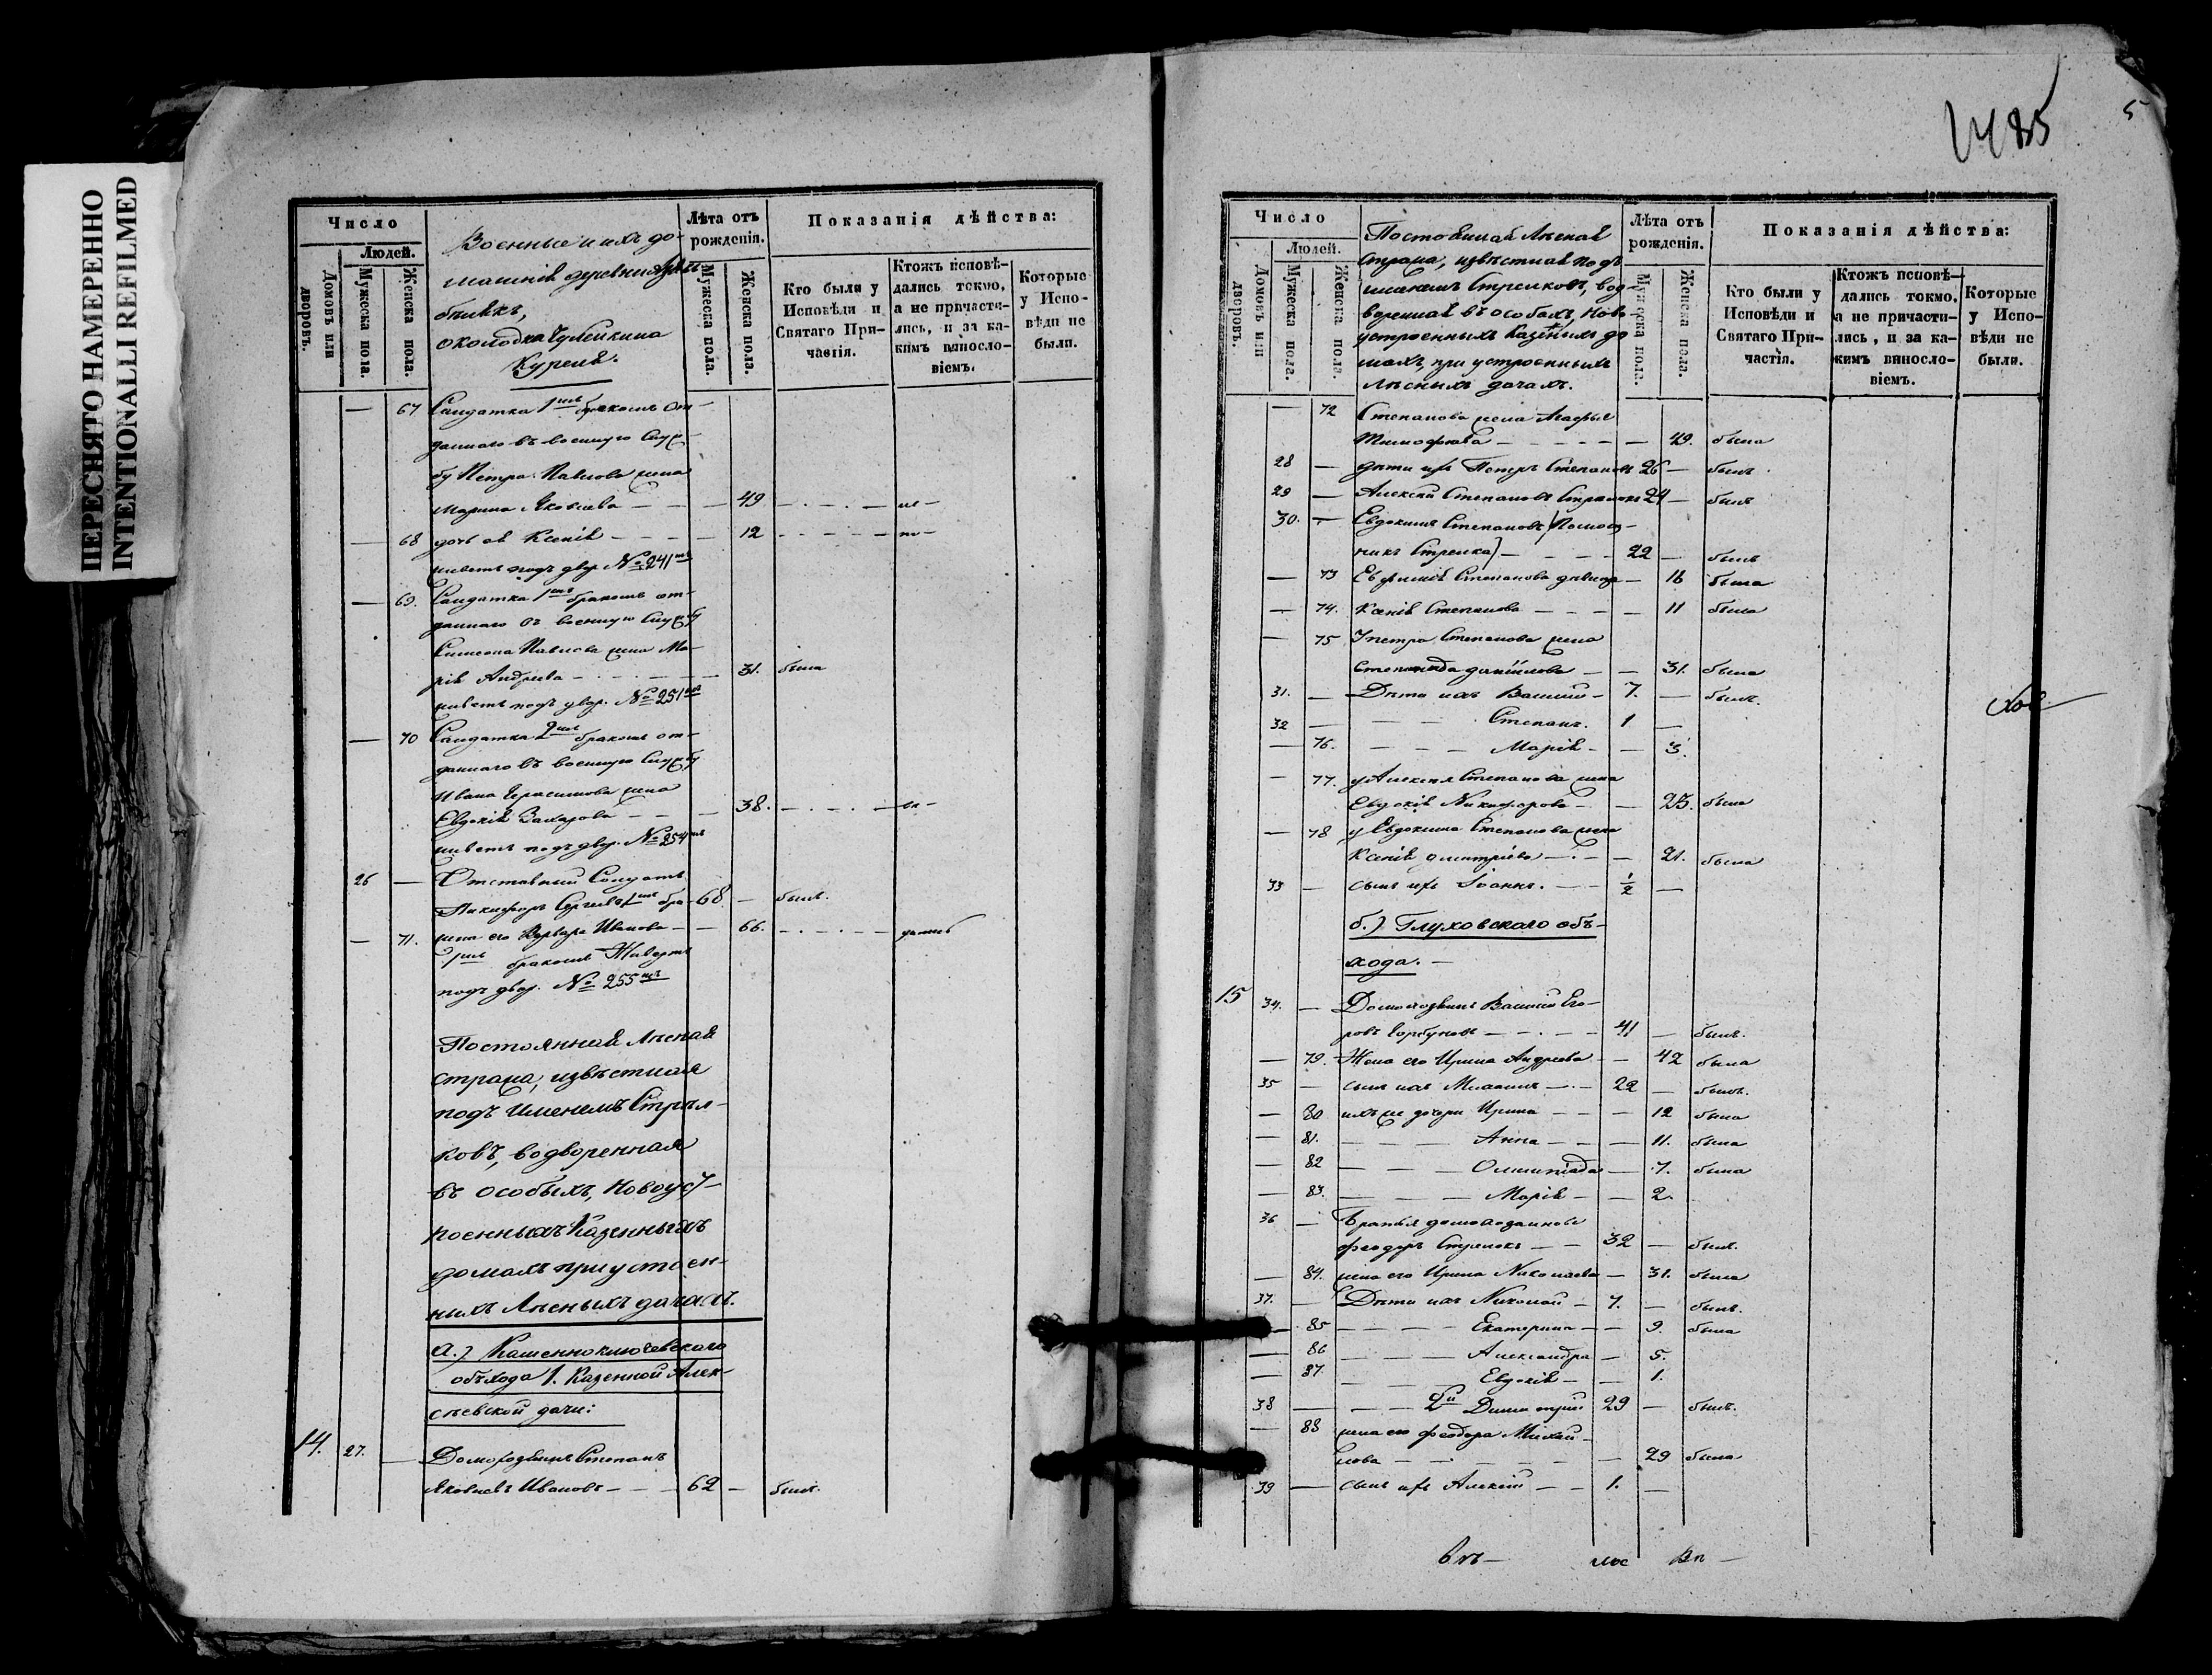 ПЕРЕСНЯТО НАМЕРЕННО
INTENTIONALLI REFILMED
Число
Людей.
Домовъ или дворовъ.
Мужеска пола.
Женска пола.
Военные и ихъ до-
машнія деревни
околодка
Лѣта отъ рожденія.
Мужеска пола.
Женска пола.
Показанія дѣйства:
Кто были у Исповѣди и Святаго Причастія.
Ктожъ исповѣ-
дались токмо,
а не причасти-
лись, и за ка-
кимъ винословіемъ.
Которые у Исповѣди не были.
— 67 Солдатка 1мъ бракомъ от-
даннаго въ военную служ-
бу Петра Павлова жена
Марина Яковлева — 49
— 68 дочь ея Ксенія — 12
живетъ подъ двор. № 241мъ
— 69. Солдатка 1мъ бракомъ от-
даннаго въ военную службу
Симеона Павлова жена Ма-
рія Андреева — 31. была
живетъ подъ двор. № 251мъ
— 70 Солдатка 2мъ бракомъ от-
даннаго въ военную службу
Ивана Герасимова жена
Евдокія Захарова — 38.
живетъ подъ двор. № 254мъ
26 — Отставный Солдатъ
Никифоръ Сергѣевъ 1мъ бра- 68 — былъ.
— 71. жена его Варвара Иванова — 66.
1мъ бракомъ Живутъ
подъ двор. № 255мъ
Постоянная Лѣсная
стража, извѣстная
подъ именемъ Стрѣл-
ковъ, водворенная
въ особыхъ, Новоуст-
роенныхъ Казенныхъ
домахъ при устроен-
ныхъ Лѣсныхъ дачахъ.
а.) Каменноключевскаго
объѣзда 1. Казенной Алек-
сѣевской дачи:
14. 27. — Домохозяинъ Степанъ
Яковлевъ Ивановъ — 62 — былъ.
85
5
Число
Людей.
Домовъ или дворовъ.
Мужеска пола.
Женска пола.
Постоянная Лѣсная
стража, извѣстная подъ
именемъ Стрѣлковъ, вод-
воренная въ особыхъ, Ново-
устроенныхъ Казенныхъ до-
махъ, при устроенныхъ
Лѣсныхъ дачахъ.
Лѣта отъ рожденія.
Мужеска пола.
Женска пола.
Показанія дѣйства:
Кто были у Исповѣди и Святаго Причастія.
Ктожъ исповѣ-
дались токмо,
а не причасти-
лись, и за ка-
кимъ винословіемъ.
Которые у Исповѣди не были.
— 72 Степанова жена Агафья
Тимофеева — 49. была
28 — дѣти ихъ Петръ Степановъ 26 — былъ
29 — Алексѣй Степановъ Стрѣлокъ 24 — былъ
30. — Евдокимъ Степановъ (Помощ-
никъ Стрѣлка) — 22 — былъ
— 73 Ефимія Степанова дѣвица — 16 была
— 74. Ксенія Степанова — 11 была
— 75 У Петра Степанова жена
Степанида Даніилова — 31. была
31. — Дѣти ихъ Василій — 7. — былъ.
32 — Степанъ. 1 —
— 76. Марія — 3.
— 77. у Алексѣя Степанова жена
Евдокія Никифорова — 25. была
— 78 у Евдокима Степанова жена
Ксенія Димитріева — 21. была
33 — сынъ ихъ Іоаннъ. 1/2 —
б.) Глуховскаго объ-
ѣзда. —
15 34. — Домохозяинъ Василій Его-
ровъ Горбуновъ — 41 — былъ.
— 79. Жена его Ирина Андреева — 42 была
35 — сынъ ихъ Михаилъ — 22 — былъ.
— 80 ихъ же дочери Ирина — 12 была
— 81. Анна — 11. была
— 82 Олимпіада — 7. была
— 83. Марія — 2.
36 — Братья домохозяиновы
Феодоръ Стрѣлокъ — 32 — былъ.
— 84. жена его Ирина Николаева — 31. была
37. — Дѣти ихъ Николай — 7. — былъ.
— 85 Екатерина — 9. была
— 86 Александра — 5.
— 87 Евдокія — 1.
38 — 2й Димитрій 29 — былъ.
— 88 жена его Феодора Михай-
лова — 29 была
39 — сынъ ихъ Алексѣй — 1. —